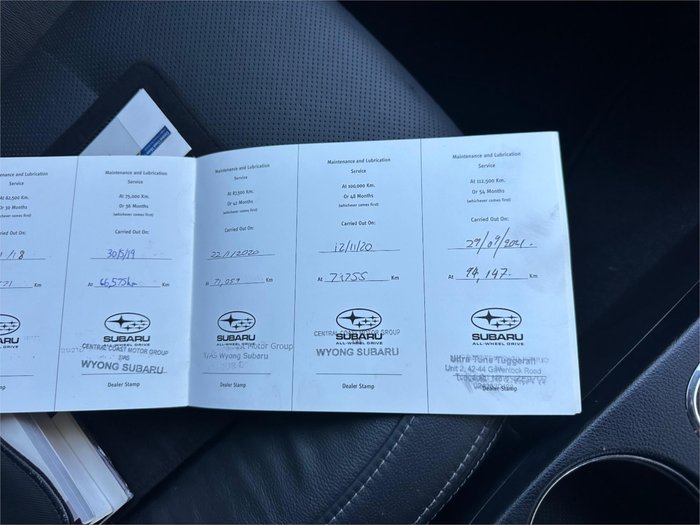 At 62,500 Km.
Or 30 Months
(whichever comes first)
Carried Out On:
Km
SUBARU
ALL-WHEEL DRIVE
Maintenance and Lubrication
Service
At 75,000 Km.
Or 36 Months
(whichever comes first)
Carried Out On:
30/5/19
At 66,575km Km
SUBARU
ALL-WHEEL DRIVE
CENTRAL COAST MOTOR GROUP
T/AS
WYONG SUBARU
Dealer Stamp
Maintenance and Lubrication
Service
At 87,500 Km.
Or 42 Months
(whichever comes first)
Carried Out On:
At 71,059 Km
SUBARU
ALL-WHEEL DRIVE
Motor Group
T/AS Wyong Subaru
Dealer Stamp
Maintenance and Lubrication
Service
At 100,000 Km.
Or 48 Months
(whichever comes first)
Carried Out On:
12/11/20
At Km
SUBARU
ALL-WHEEL DRIVE
CENTRAL COAST MOTOR GROUP
WYONG SUBARU
Dealer Stamp
Maintenance and Lubrication
Service
At 112,500 Km.
Or 54 Months
(whichever comes first)
Carried Out On:
29/09/2021.
At 94,147. Km
SUBARU
ALL-WHEEL DRIVE
Ultra Tune Tuggerah
Unit 2, 42-44 Gavenlock Road
Dealer Stamp